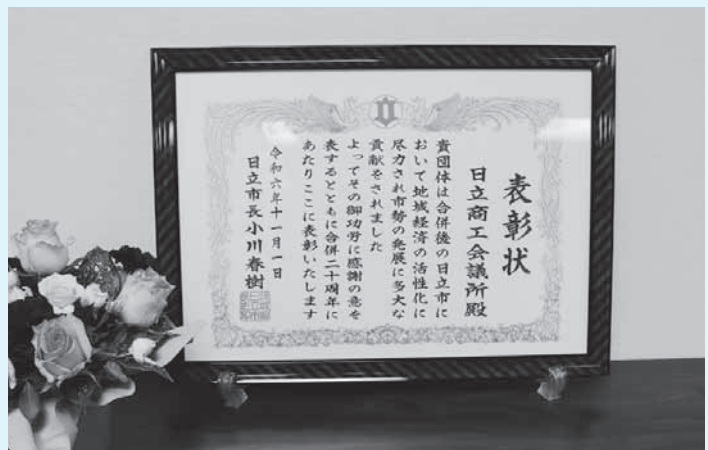 表彰状
日立商工会議所殿
貴団体は合併後の日立市に
おいて地域経済の活性化に
尽力され市勢の発展に多大な
貢献をされました
よってその御功労に感謝の意を
表するとともに合併二十周年に
あたりここに表彰いたします
令和六年十一月一日
日立市長小川春樹